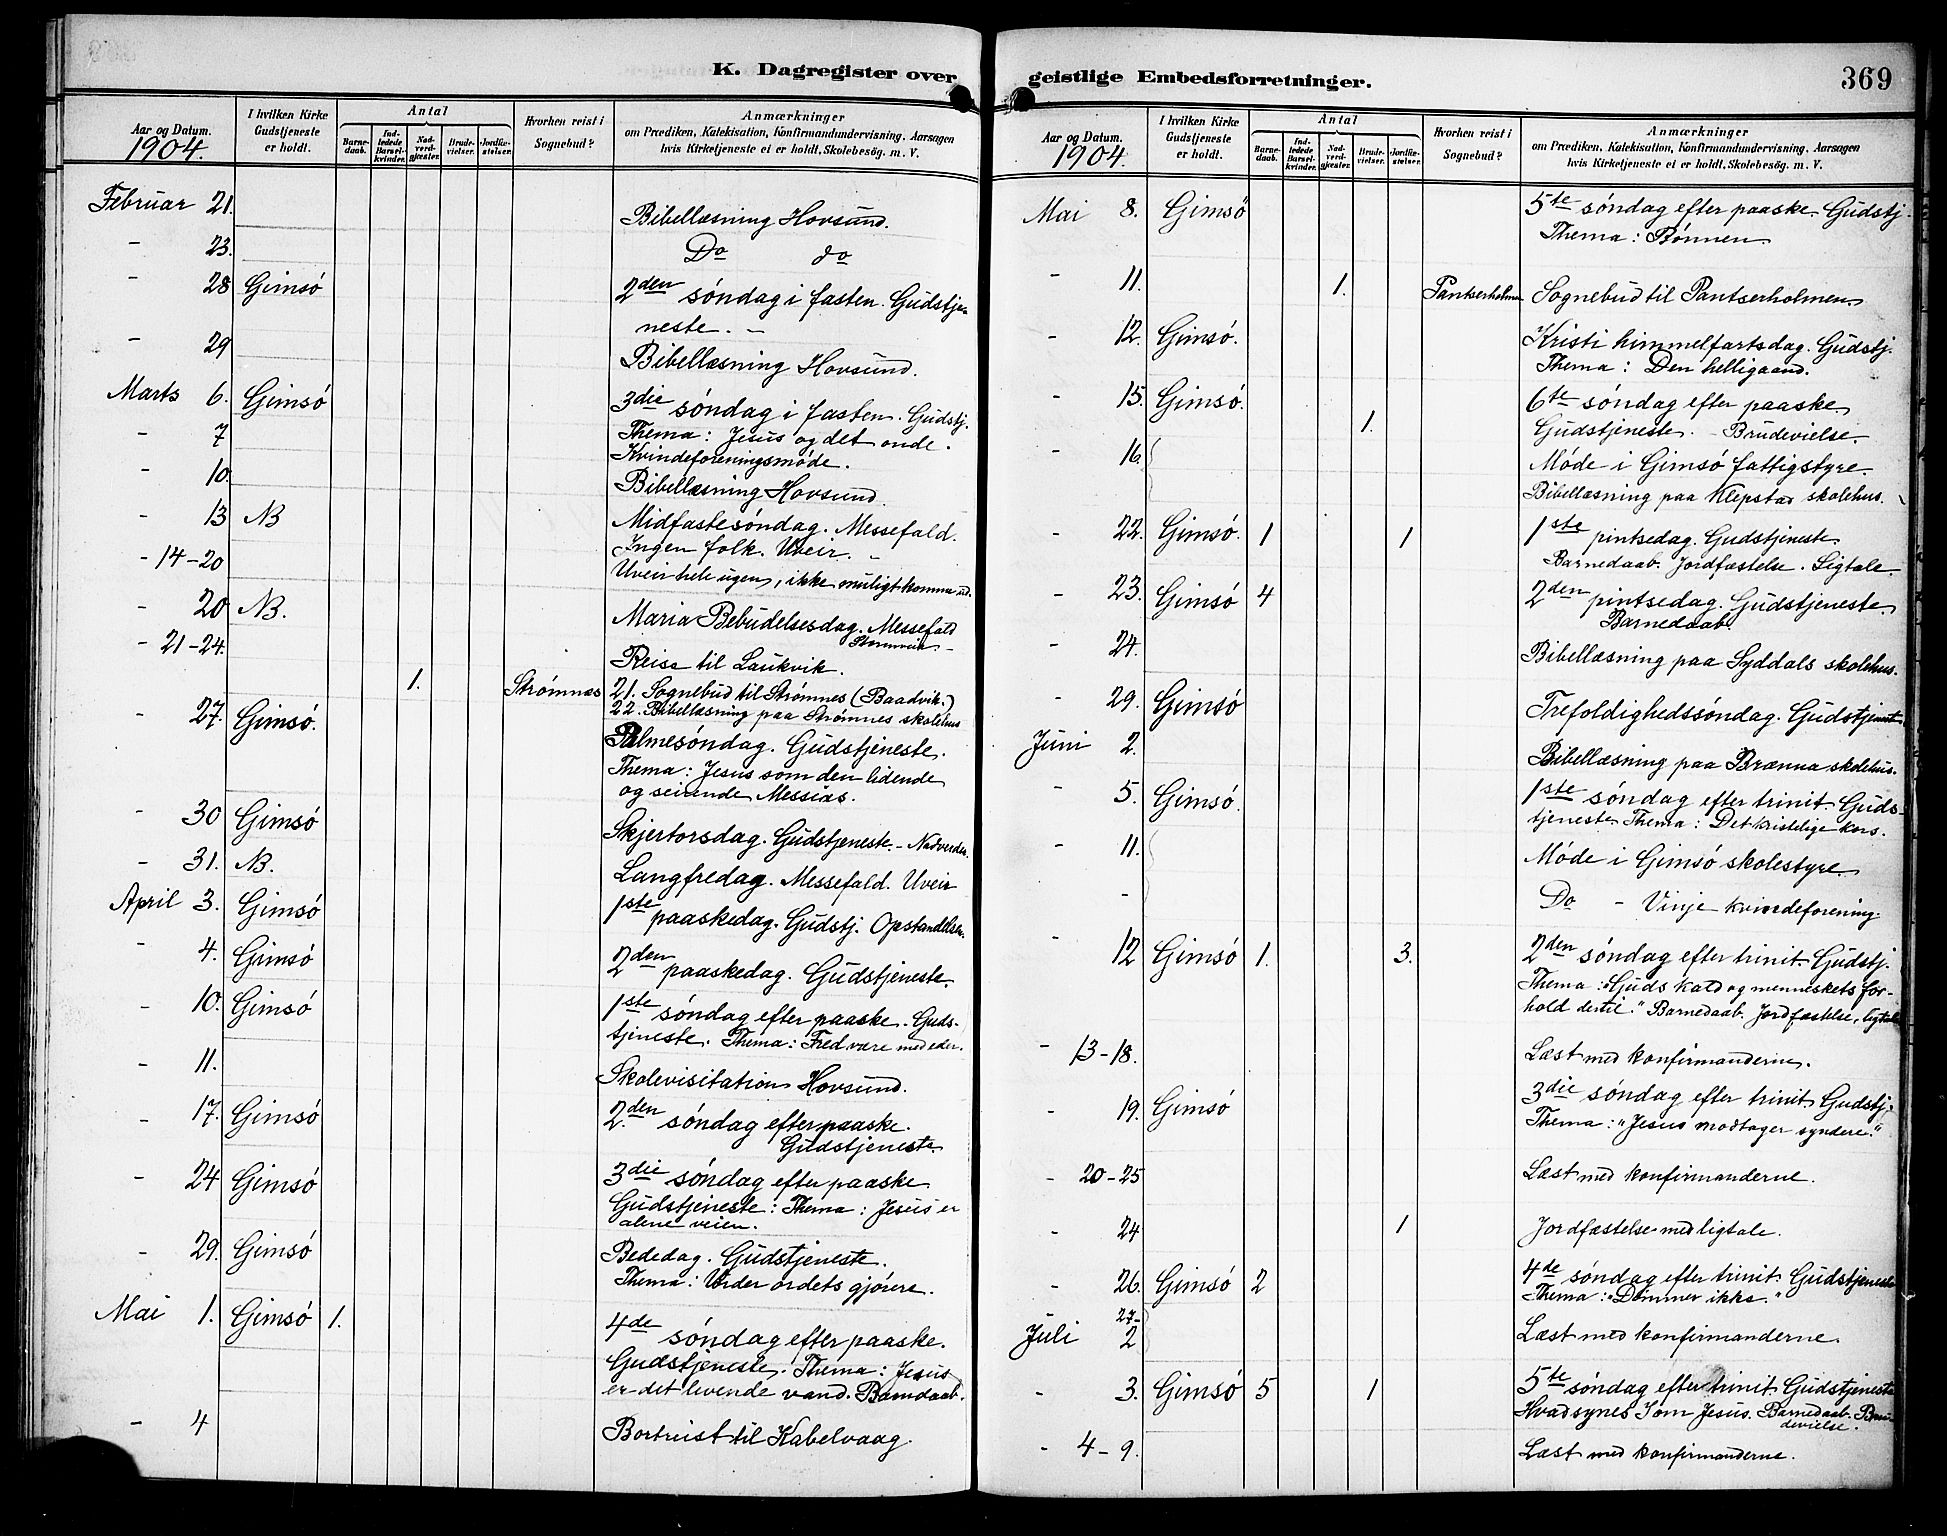 K. Dagregister over
Aar og Datum.
1904.
I hvilken Kirke Gudstjeneste er holdt.
Antal
Barnedaab.
Indledede Barselkvinder.
Nadverdgjester.
Brudevielser.
Jordfæstelser.
Hvorhen reist i Sognebud?
Anmærkninger
om Prædiken, Katekisation, Konfirmandundervisning, Aarsagen
hvis Kirketjeneste ei er holdt, Skolebesög. m. V.
Februar 21. Bibellæsning Hovsund.
- 23. Do do
- 28 Gimsó 2den söndag i fasten. Gudstje-
neste. -
- 29 Bibellæsning Hovsund.
Marts 6. Gimsó 3die söndag i fasten. Gudstj.
Thema: Jesus og det onde.
- 7 Kvindeforeningsmóde.
- 10. Bibellæsning Hovsund.
- 13 NB Midfastesóndag. Messefald.
Ingen folk. Uveir. -
- 14-20 Uveir hele ugen, ikke muligt komme ud.
- 20 NB. Maria Bebudelsesdag. Messefald
- 21-24. Reise til Laukvik.
1. Strómnæs 21. Sognebud til Strómnes (Baadvik.)
22. Bibellæsning paa Strómnes skolehus
- 27. Gimsó. Palmesóndag. Gudstjeneste.
Thema: Jesus som den lidende
og seirende Messias.
- 30 Gimsó Skjertorsdag. Gudstjeneste. - Nadverden.
- 31. NB. Langfredag. Messefald. Uveir
April 3. Gimsó 1ste paaskedag. Gudstj. Opstandelsen.
- 4. Gimsó 2den paaskedag. Gudstjeneste.
- 10. Gimsó 1ste sóndag efter paaske. Guds-
tjeneste. Thema: Fred være med eder.
- 11. Skolevisitation Hovsund.
- 17. Gimsó 2den sóndag efter paaske.
Gudstjeneste.
- 24 Gimsó 3die sóndag efter paaske
Gudstjeneste: Thema: Jesus er
alene veien.
- 29. Gimsó Bededag. Gudstjeneste.
Thema: Vorder ordets gjórere.
Mai 1. Gimsó 1. 4de sóndag efter paaske.
Gudstjeneste. Thema: Jesus
er det levende vand. Barndaab.
- 4 Bortreist til Kabelvaag.
geistlige Embedsforretninger.
369
Aar og Datum.
1904.
I hvilken Kirke Gudstjeneste er holdt.
Antal
Barnedaab.
Indledede Barselkvinder.
Nadverdgjester.
Brudevielser.
Jordfæstelser.
Hvorhen reist i Sognebud?
Anmærkninger
om Prædiken, Katekisation, Konfirmandundervisning, Aarsagen
hvis Kirketjeneste ei er holdt, Skolebesög. m. V.
Mai 8. Gimsó 5te sóndag efter paaske. Gudstj.
Thema: Bónnen
- 11. 1. Pantserholmen Sognebud til Pantserholmen.
- 12. Gimsó. Kristi himmelfartsdag. Gudstj.
Thema: Den helligaand.
- 15. Gimsó. 6te sóndag efter paaske.
1. Gudstjeneste. - Brudevielse.
- 16. Móde i Gimsó fattigstyre.
Bibellæsning paa Klepstad skolehus.
- 22. Gimsó. 1 1 1ste pintsedag. Gudstjeneste
Barnedaab. Jordfæstelse. Ligtale.
- 23. Gimsó 4 2den pintsedag. Gudstjeneste.
Barnedaab.
- 24. Bibellæsning paa Syddals skolehus.
- 29. Gimsó Trefoldighedssóndag. Gudstjeneste
Juni 2. Bibellæsning paa Brænna skolehus.
- 5. Gimsó. 1ste sóndag efter trinit. Guds-
tjeneste. Thema: Det kristelige kors.
- 11. Móde i Gimsó skolestyre.
- Do - Vinje kvindeforening.
- 12 Gimsó 1. 3. 2den sóndag efter trinit. Gudstj.
Thema: "Guds kald og menneskets for-
hold dertil." Barnedaab. Jordfæstelse, ligtale
- 13-18. Læst med konfirmanderne.
- 19. Gimsó 3die sóndag efter trinit. Gudstj.
Thema: "Jesus modtager syndere."
- 20-25 Læst med konfirmanderne.
- 24 1 Jordfæstelse med ligtale.
- 26. Gimsó 2 4de sóndag efter trinit. Gudstjeneste
Thema: "Dómmer ikke."
27-
Juli 2 Læst med konfirmanderne.
- 3. Gimsó 5 1 5te sóndag efter trinit. Gudstjeneste
Hvad synes I om Jesus. Barnedaab. Bru-
devielse.
- 4-9. Læst med konfirmanderne.